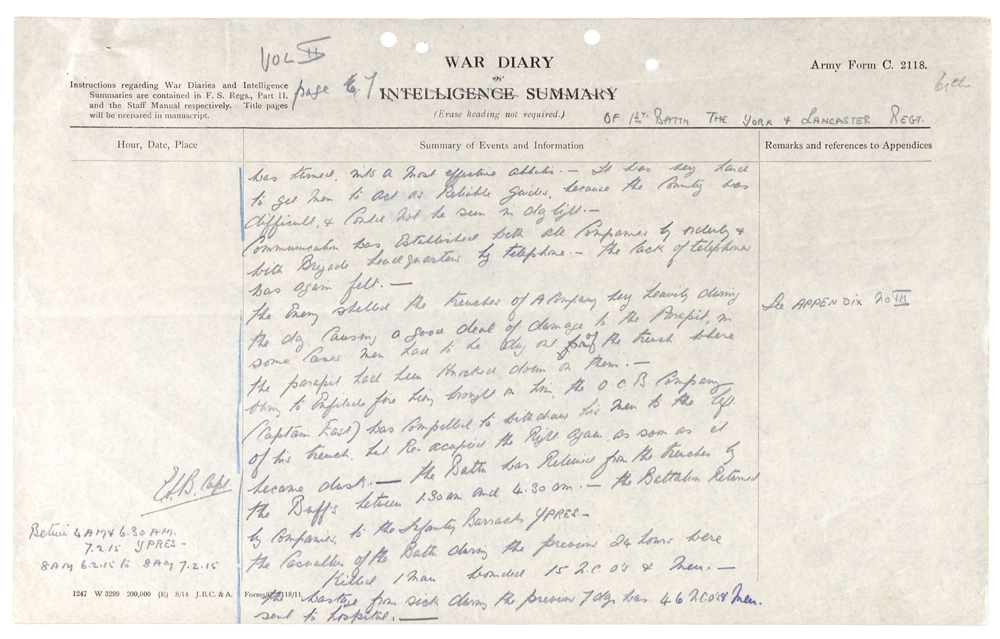 VOL II
page 7
WAR DIARY
or
INTELLIGENCE SUMMARY
(Erase heading not required.)
Army Form C. 2118.
Instructions regarding War Diaries and Intelligence
Summaries are contained in F. S. Regs., Part II.
and the Staff Manual respectively. Title pages
will be prepared in manuscript.
OF 1ST. BATTN THE YORK & LANCASTER REGT.
Hour, Date, Place
Summary of Events and Information
Remarks and references to Appendices
was turned, into a most effective abbatis. — It was very hard
to get men to act as Reliable guides, because the Country was
difficult, & could not be seen in day light. —
Communication was Established with all Companies by orderly &
with Brigade headquarters by telephone. — the lack of telephones
was again felt. —
the Enemy shelled the trenches of A Company very heavily during
the day causing a good deal of damage to the Parapit, in
some cases men had to be dug out of the trench where
the parapit had been knocked down on them. —
Owing to Enfilade fire being brought on him, the O C B Company
(Captain East) was compelled to withdraw his men to the left
of his trench, but Re-occupied the Right again as soon as it
became dusk. — the Battn was Relieved from the trenches by
the Buffs between 1.30 am and 4.30 am. — the Battalion Returned
by Companies, to the Infantry Barracks YPRES —
the Casualties of the Battn during the previous 24 hours were
Killed 1 Man wounded 15 N.C.O's & Men. —
wastage from sick during the previous 7 days was 46 NCO's & Men.
sent to hospital. —
See APPENDIX No III
Capt.
4 AM & 6.30 AM.
7.2.15 YPRES —
8 AM 6.2.15 to 8 AM 7.2.15
1247 W 3299 200,000 (E) 8/14 J.B.C. & A. Forms/C. 2118/11.